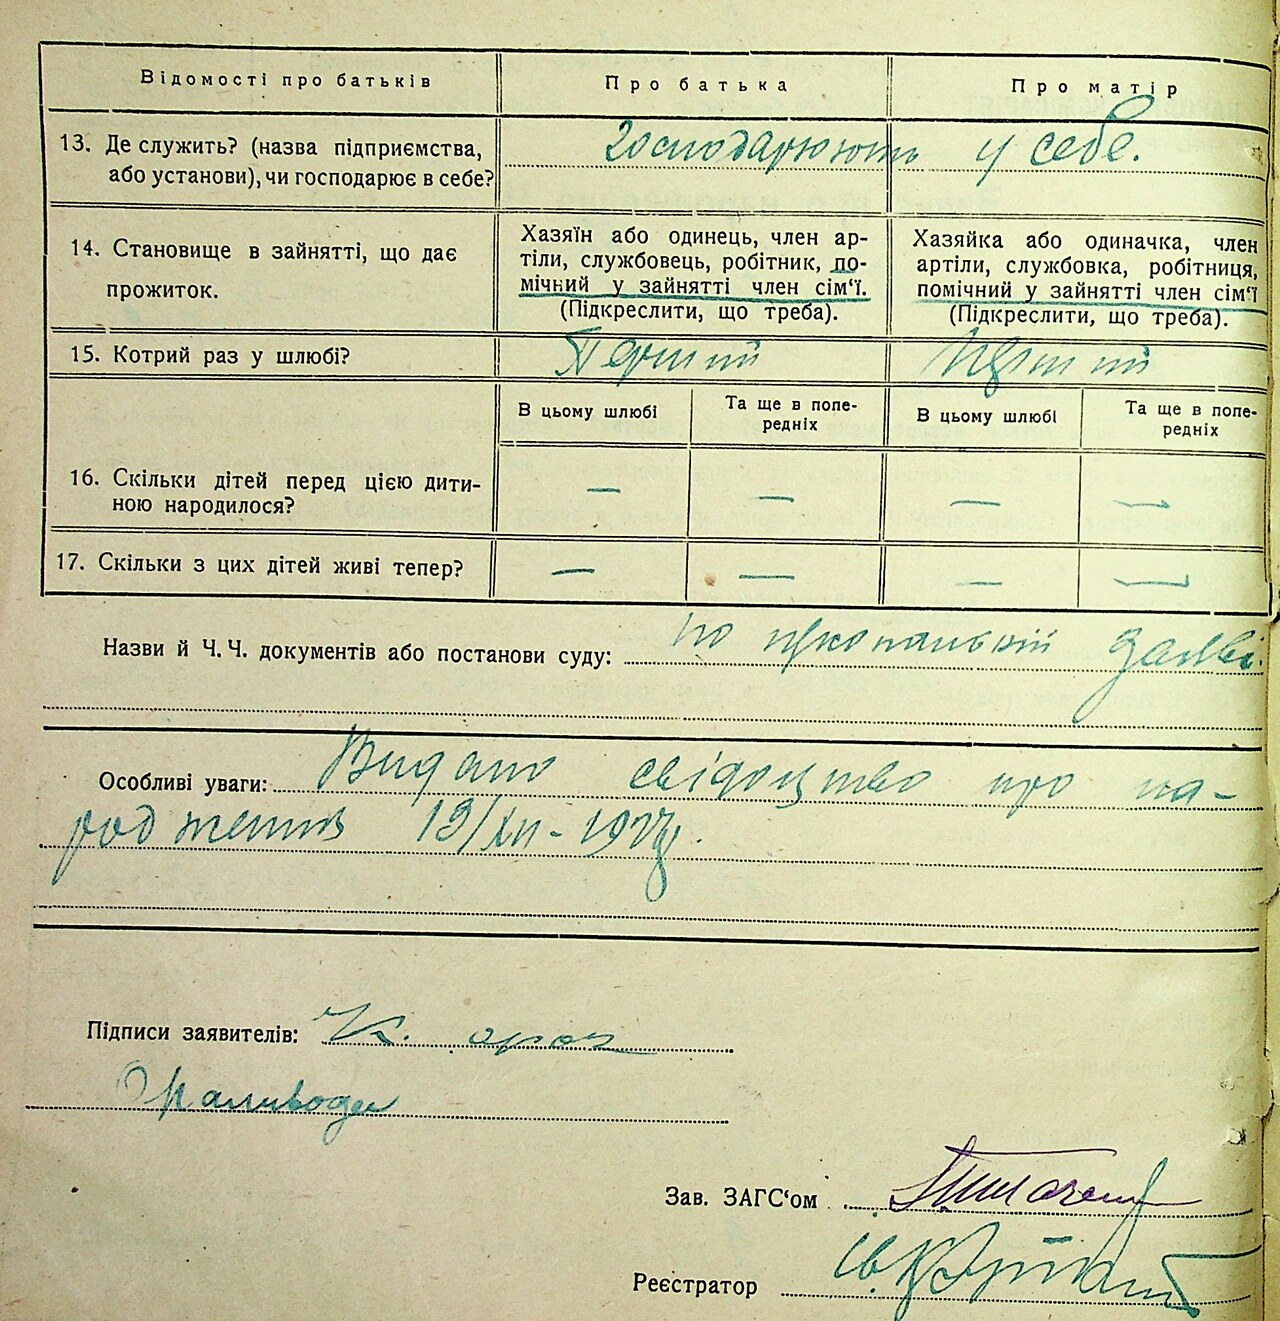 Відомості про батьків Про батька Про матір
13. Де служить? (назва підприємства, або установи), чи господарює в себе? Господарюють у себе.
14. Становище в зайнятті, що дає прожиток.
Хазяїн або одинець, член ар-
тіли, службовець, робітник, по-
мічний у зайнятті член сім‘ї.
(Підкреслити, що треба).
Хазяйка або одиначка, член
артіли, службовка, робітниця,
помічний у зайнятті член сім‘ї
(Підкреслити, що треба).
15. Котрий раз у шлюбі? Перший Перший
В цьому шлюбі Та ще в попе-
редніх В цьому шлюбі Та ще в попе-
редніх
16. Скільки дітей перед цією дити-
ною народилося? — — — —
17. Скільки з цих дітей живі тепер? — — — —
Назви й Ч. Ч. документів або постанови суду: по заяві.
Особливі уваги: Видано свідоцтво про на-
родження 19/XII - 1927р.
Підписи заявителів: К.
Зав. ЗАГС‘ом
Реєстратор